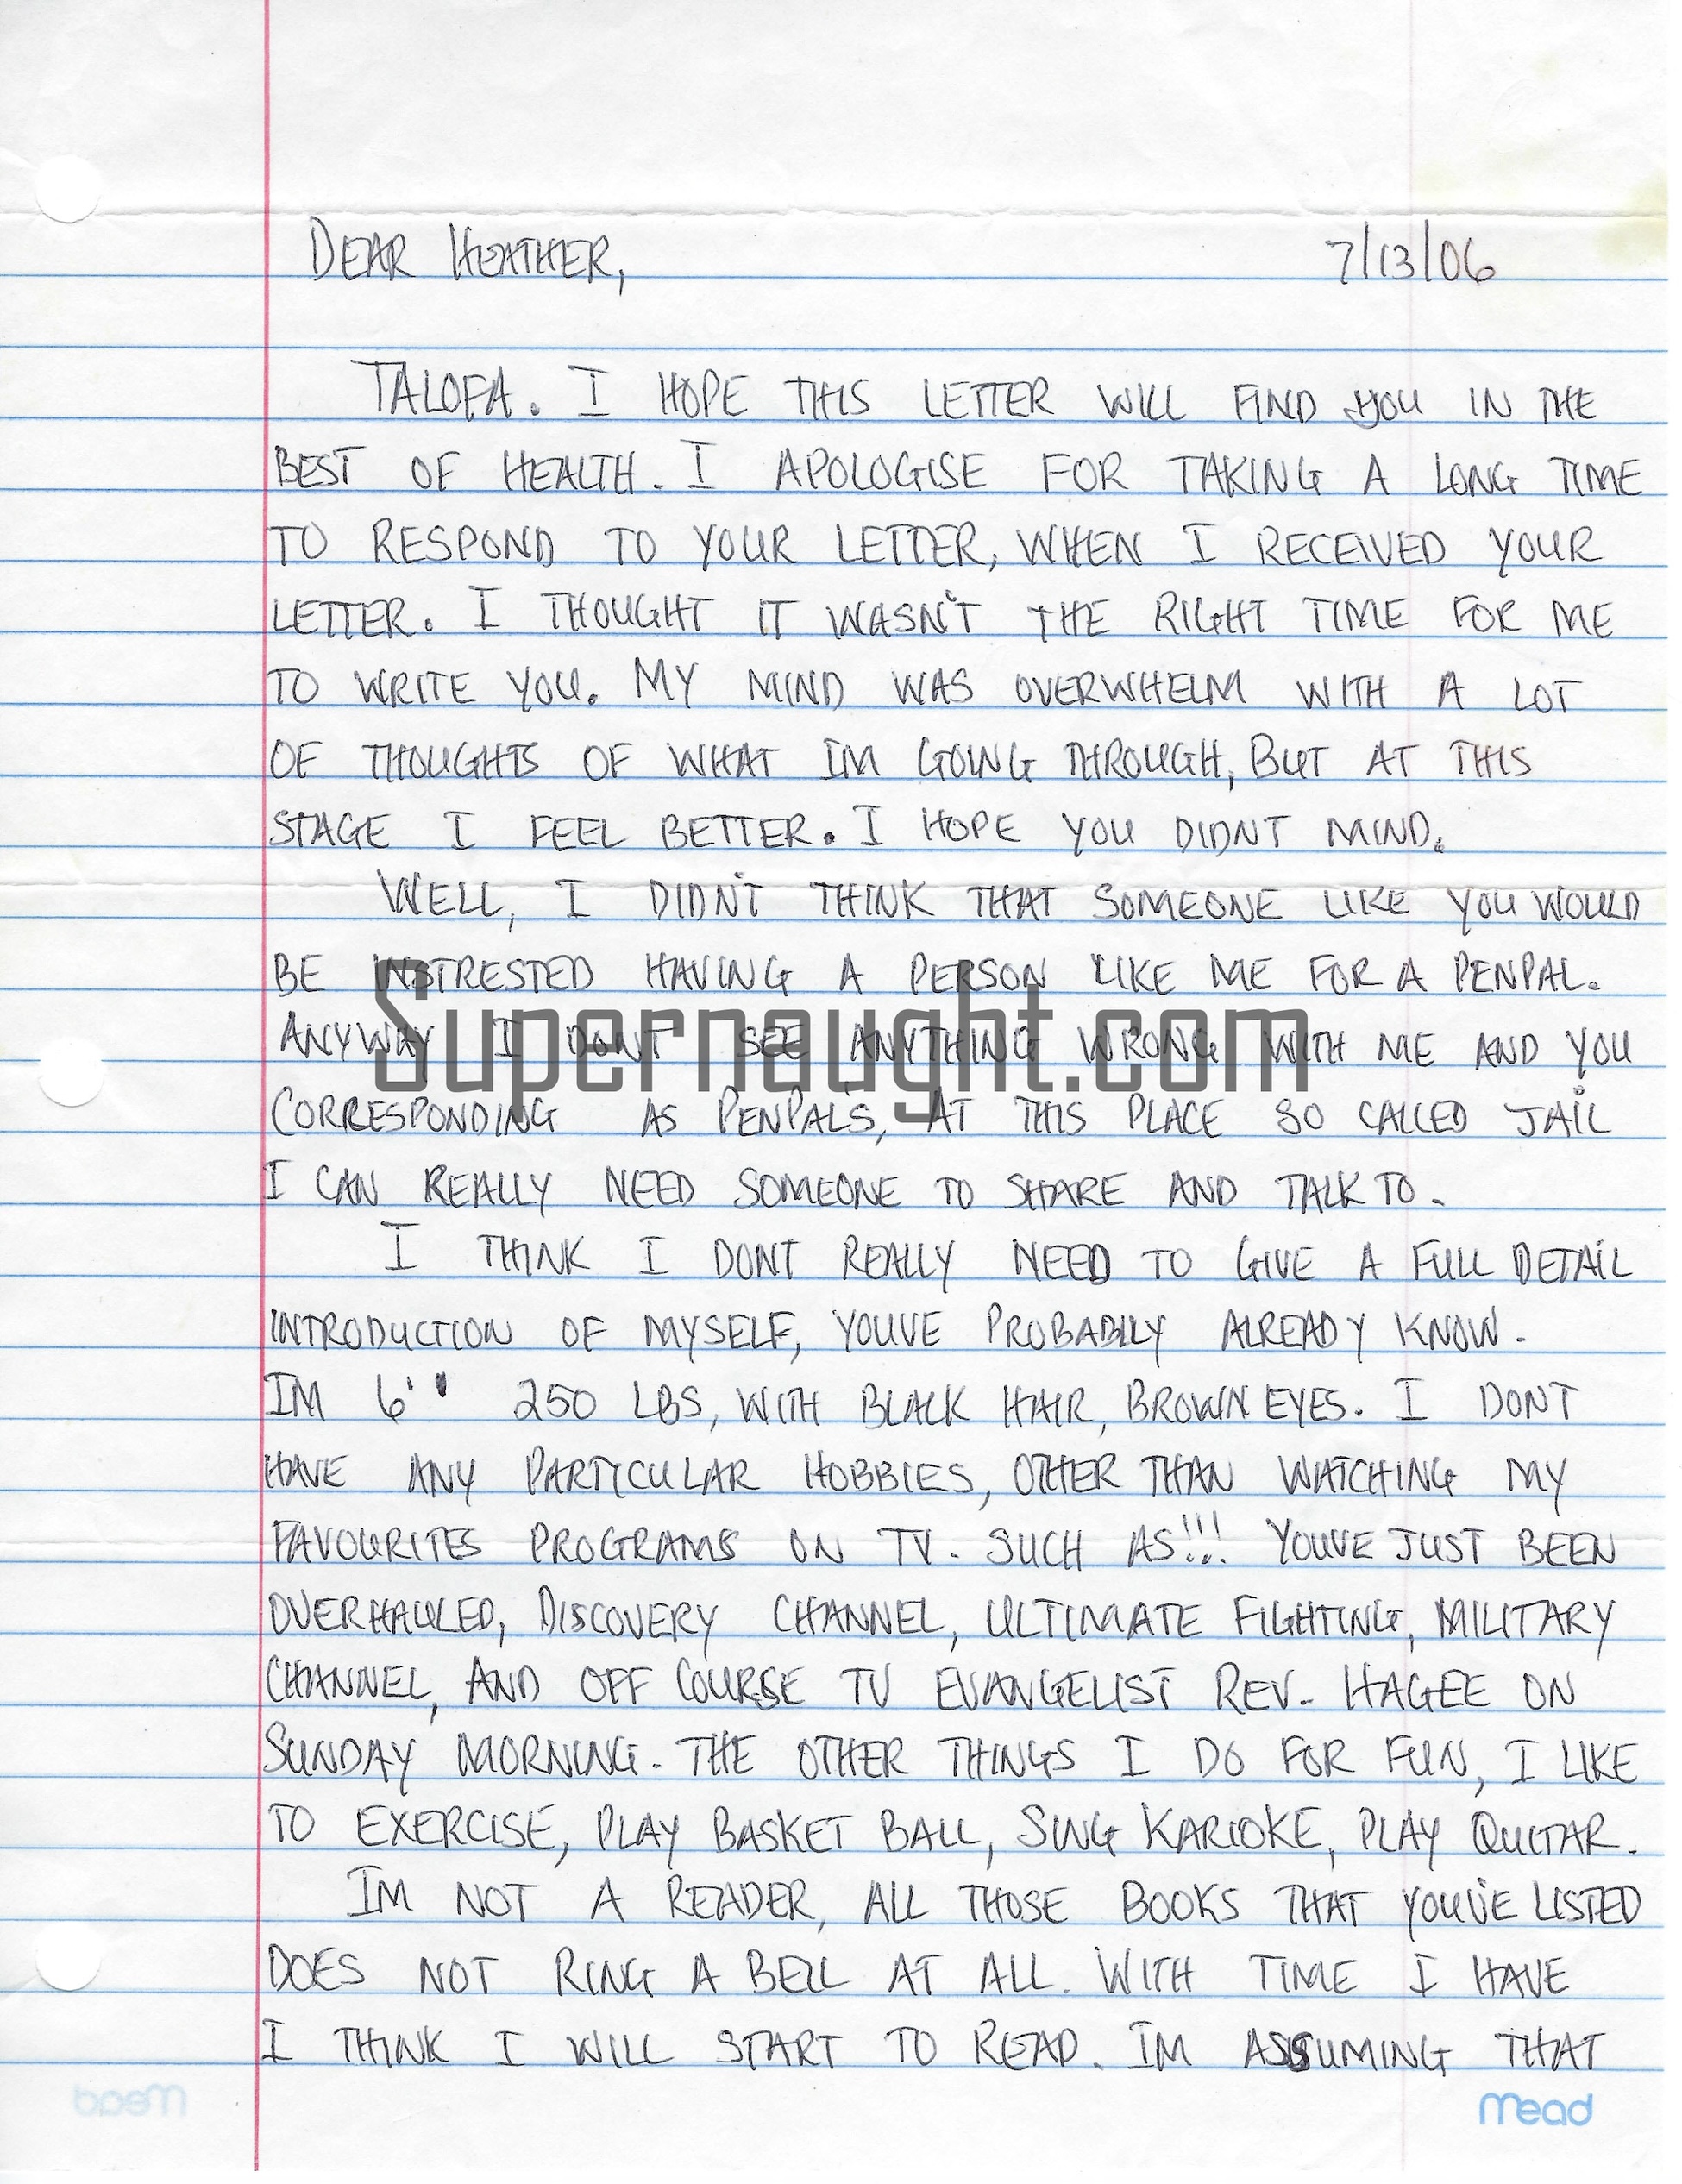 DEAR HEATHER, 7/13/06
TALOFA. I HOPE THIS LETTER WILL FIND YOU IN THE
BEST OF HEALTH. I APOLOGISE FOR TAKING A LONG TIME
TO RESPOND TO YOUR LETTER, WHEN I RECEIVED YOUR
LETTER. I THOUGHT IT WASN'T THE RIGHT TIME FOR ME
TO WRITE YOU. MY MIND WAS OVERWHELM WITH A LOT
OF THOUGHTS OF WHAT IM GOING THROUGH, BUT AT THIS
STAGE I FEEL BETTER. I HOPE YOU DIDNT MIND.
WELL, I DIDN'T THINK THAT SOMEONE LIKE YOU WOULD
BE INSTRESTED HAVING A PERSON LIKE ME FOR A PENPAL.
Supernaught.com
ANYWAY I DONT SEE ANYTHING WRONG WITH ME AND YOU
CORRESPONDING AS PENPAL'S, AT THIS PLACE SO CALLED JAIL
I CAN REALLY NEED SOMEONE TO SHARE AND TALK TO.
I THINK I DONT REALLY NEED TO GIVE A FULL DETAIL
INTRODUCTION OF MYSELF, YOUVE PROBABLY ALREADY KNOW.
IM 6' 250 LBS, WITH BLACK HAIR, BROWN EYES. I DONT
HAVE ANY PARTICULAR HOBBIES, OTHER THAN WATCHING MY
FAVOURITES PROGRAMS ON TV. SUCH AS!!! YOUVE JUST BEEN
OVERHAULED, DISCOVERY CHANNEL, ULTIMATE FIGHTING, MILITARY
CHANNEL, AND OFF COURSE TV EVANGELIST REV. HAGEE ON
SUNDAY MORNING. THE OTHER THINGS I DO FOR FUN, I LIKE
TO EXERCISE, PLAY BASKET BALL, SING KARIOKE, PLAY QUITAR.
IM NOT A READER, ALL THOSE BOOKS THAT YOU'VE LISTED
DOES NOT RING A BELL AT ALL. WITH TIME I HAVE
I THINK I WILL START TO READ. IM ASSUMING THAT
Mead